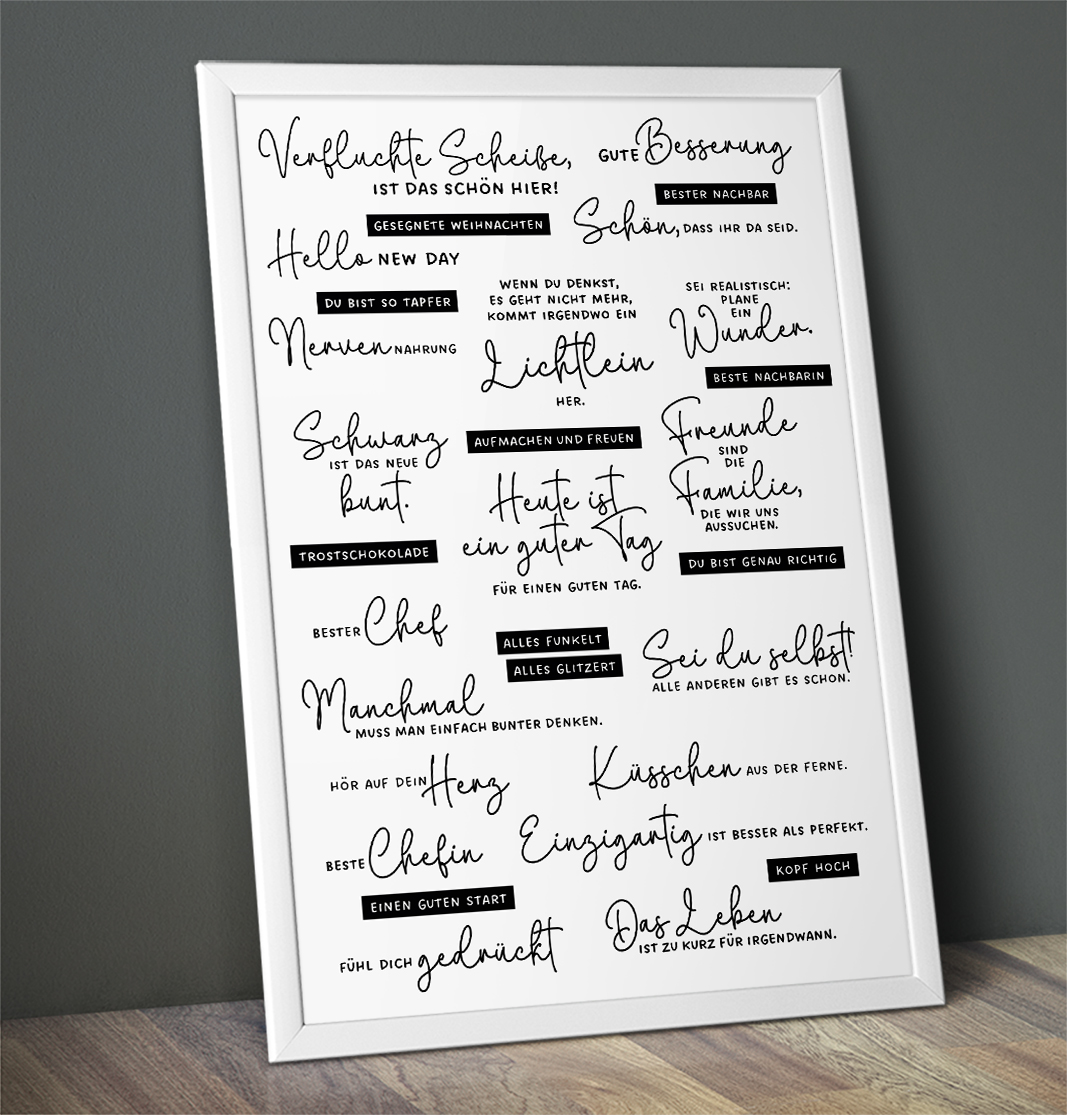 Verfluchte Scheiße,
IST DAS SCHÖN HIER!
GUTE Besserung
BESTER NACHBAR
GESEGNETE WEIHNACHTEN
Schön, DASS IHR DA SEID.
Hello NEW DAY
DU BIST SO TAPFER
WENN DU DENKST,
ES GEHT NICHT MEHR,
KOMMT IRGENDWO EIN
Lichtlein
HER.
SEI REALISTISCH:
PLANE
EIN
Wunder.
Nerven NAHRUNG
BESTE NACHBARIN
Schwarz
IST DAS NEUE
bunt.
AUFMACHEN UND FREUEN
Freunde
SIND
DIE
Familie,
DIE WIR UNS
AUSSUCHEN.
Heute ist
ein guter Tag
FÜR EINEN GUTEN TAG.
TROSTSCHOKOLADE
DU BIST GENAU RICHTIG
BESTER Chef
ALLES FUNKELT
ALLES GLITZERT
Sei du selbst!
ALLE ANDEREN GIBT ES SCHON.
Manchmal
MUSS MAN EINFACH BUNTER DENKEN.
HÖR AUF DEIN Herz
Küsschen AUS DER FERNE.
BESTE Chefin
Einzigartig IST BESSER ALS PERFEKT.
KOPF HOCH
EINEN GUTEN START
Das Leben
IST ZU KURZ FÜR IRGENDWANN.
FÜHL DICH gedrückt